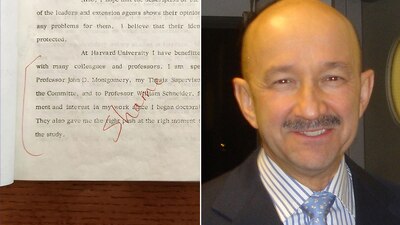 Also, I hope that the description of the
of the leaders and extension agents shows their opinion
any problems for them. I believe that their iden
protected.
At Harvard University I have benefitte
with many colleagues and professors. I am spe
Professor John D. Montgomery, my Thesis Supervis
the Committee, and to Professor William Schneider, f
ment and interest in my work since I began doctora
They also gave me the right push at the righ moment t
the study.
Shame